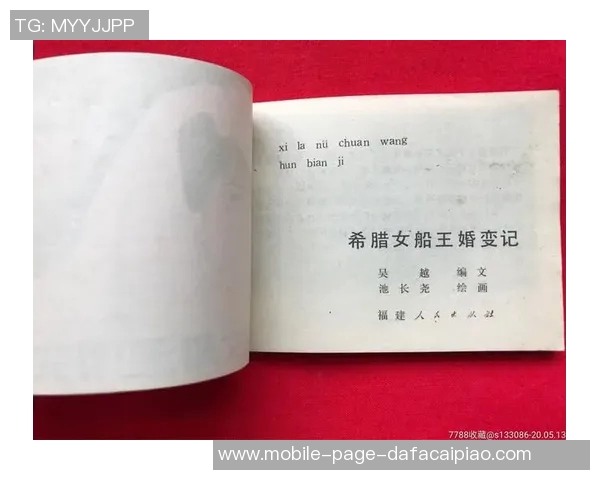 TG: MYYJJPP
xi la nü chuan wang
hun bian ji
希腊女船王婚变记
吴 越 编文
池长尧 绘画
福建人民出版社
7788收藏@s133086-20.05.13
www.mobile-page-dafacaipiao.com